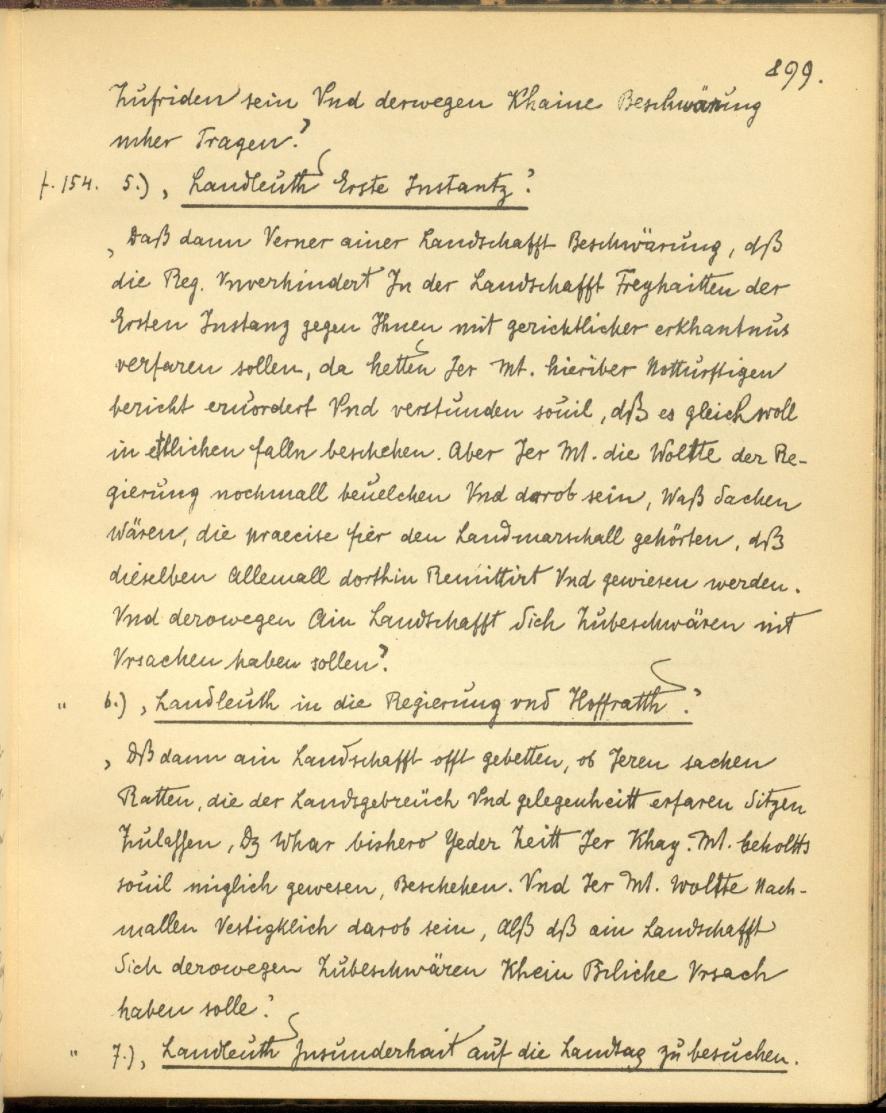 899.
Zufriden sein Vnd derwegen Khaine Beschwärung
mher Tragen.'
f. 154. 5.) ‚Landleuth Erste Instantz.'
‚Daß dann Verner ainer Landschafft Beschwärung, dß
die Reg. Vnverhindert In der Landschafft Freyhaitten der
Ersten Instanz gegen Ihnen mit gerichtlicher erkhantnus
verfaren sollen, da hetten Jer Mt. hierüber Notturftigen
bericht eruordert Vnd verstunden souil, dß es gleichwoll
in etlichen falln beschehen. Aber Jer Mt. die Wollte der Re-
gierung nochmall beuelchen Vnd darob sein, Waß Sachen
Wären, die praecise fier den Landmarschall gehörten, dß
dieselben Allemall dorthin Remittirt Vnd gewiesen werden.
Vnd derowegen Ain Landschafft Sich Zubeschwären nit
Vrsachen haben sollen.'
" 6.) ‚Landleuth in die Regierung vnd Hoffratth.'
‚Dß dann ain Landschafft offt gebetten, ob Jeren sachen
Ratten, die der Landsgebreüch Vnd gelegenheitt erfaren Sitzen
Zulassen, Dz Whar bishero Yeder Zeitt Jer Khay. Mt.
souil miglich gewesen, Beschehen. Vnd Jer Mt. wollte Nach-
mallen Vestigklich darob sein, Alß dß ain Landschafft
Sich derowegen Zubeschwären Khein Biliche Vrsach
haben solle.'
" 7.) ‚Landleuth Insunderhait auf die Landtag zu besuchen.